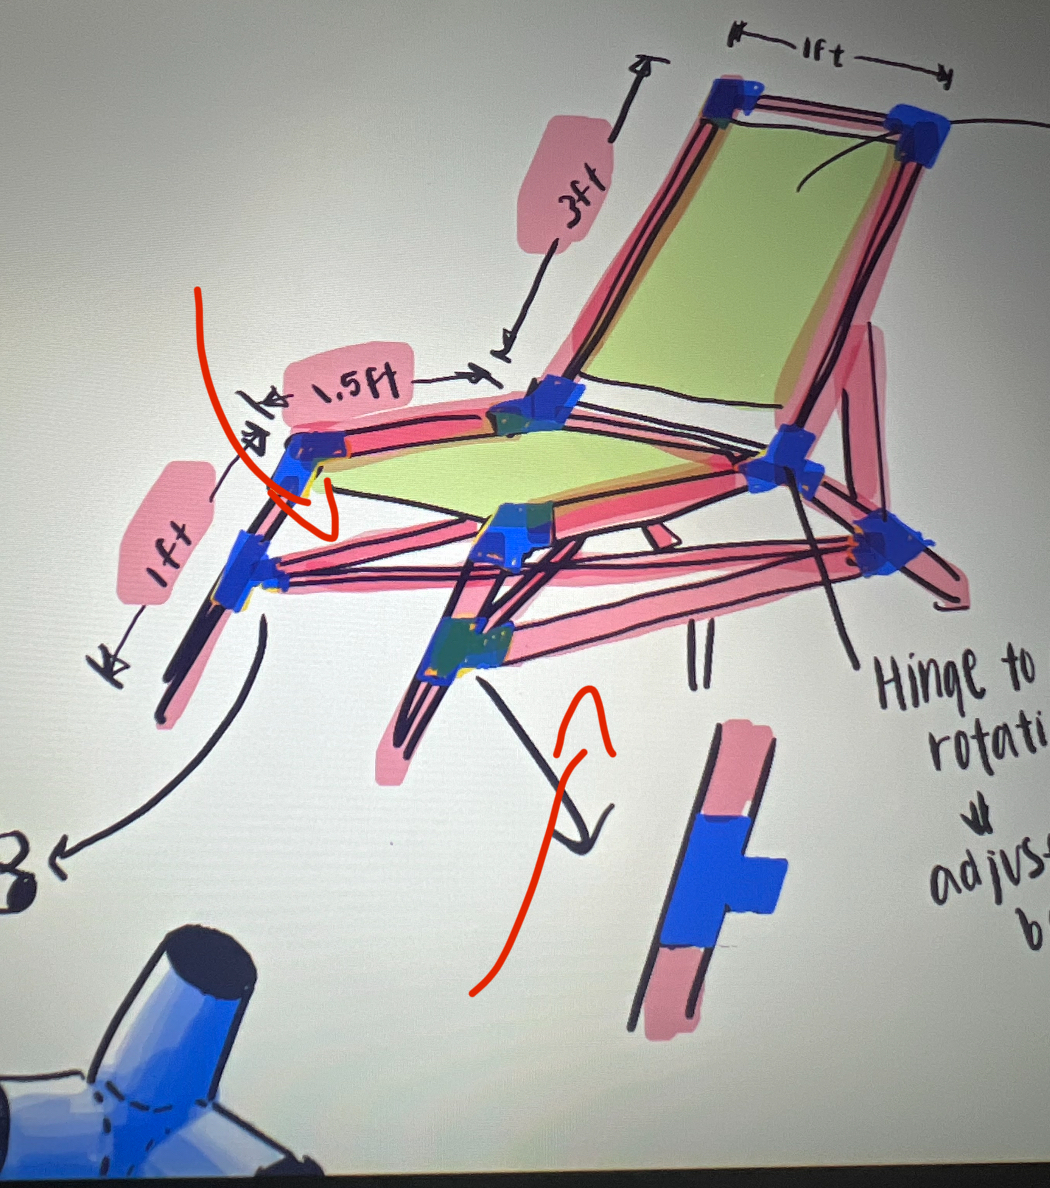 1ft
3ft
1.5ft
1ft
Hinge to
rotati
adjus
b